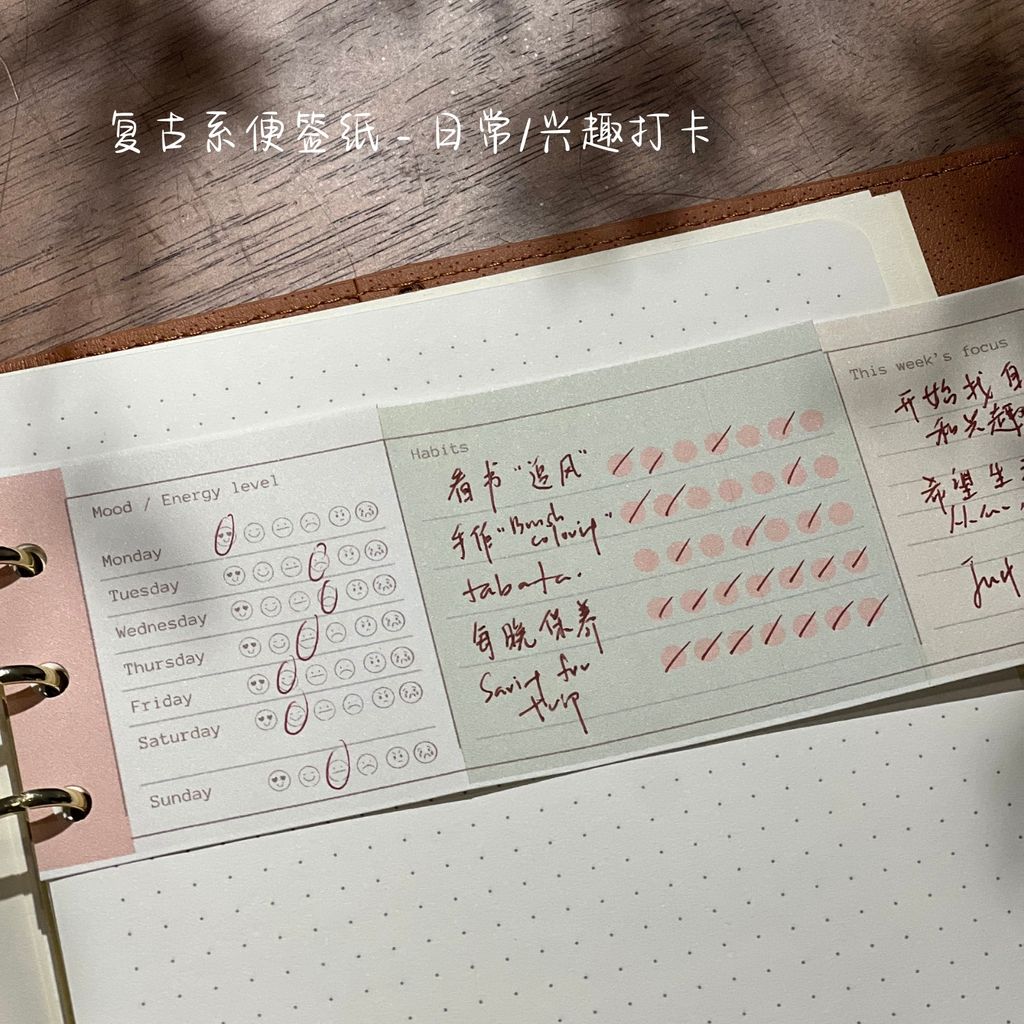 复古系便签纸 - 日常/兴趣打卡
Mood / Energy level
Monday
Tuesday
Wednesday
Thursday
Friday
Saturday
Sunday
Habits
看书 "追风"
手作 "Brush
colouring"
tabata.
每晚保养
Saving for
trip
This week's focus
开始找自
和兴趣
希望生